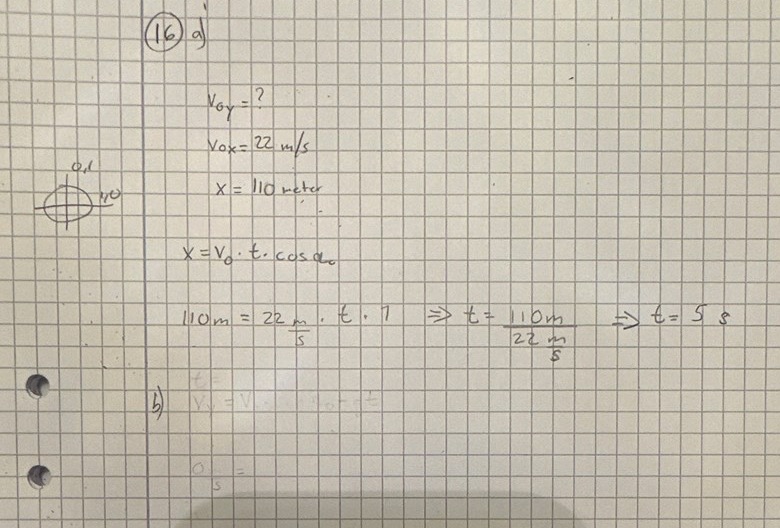 16 a)
V₀y = ?
V₀x = 22 m/s
x = 110 meter
0,1
1,0
x = V₀ · t · cos α₀
110m = 22 m/s · t · 1 ⇒ t = 110m / 22 m/s ⇒ t = 5 s
b)